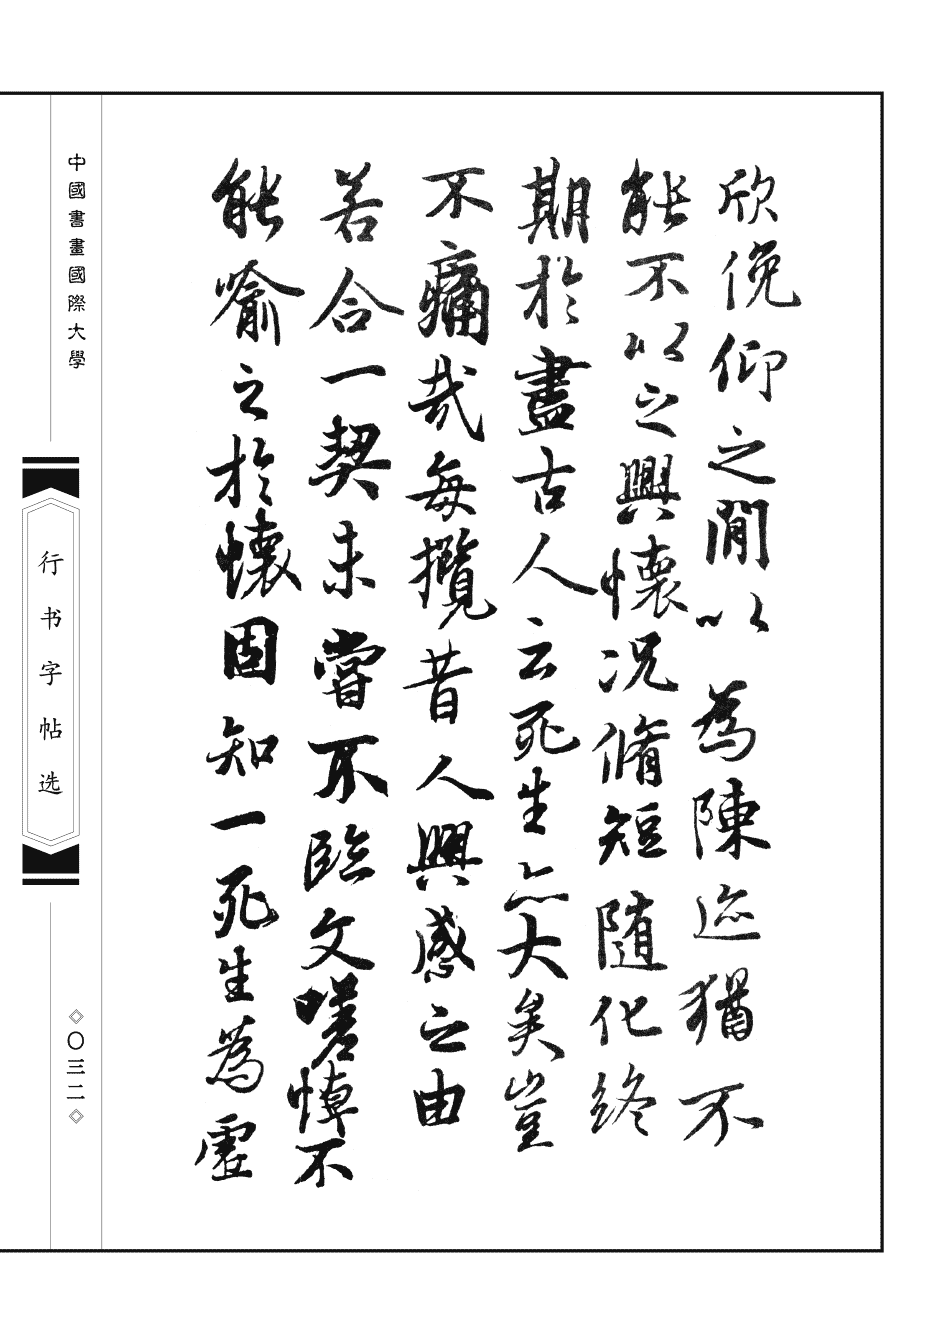 欣俛仰之閒以為陳迹猶不
能不以之興懷況脩短隨化終
期於盡古人云死生亦大矣豈
不痛哉每攬昔人興感之由
若合一契未嘗不臨文嗟悼不
能喻之於懷固知一死生為虛
中國書畫國際大學
行书字帖选
◇〇三二◇